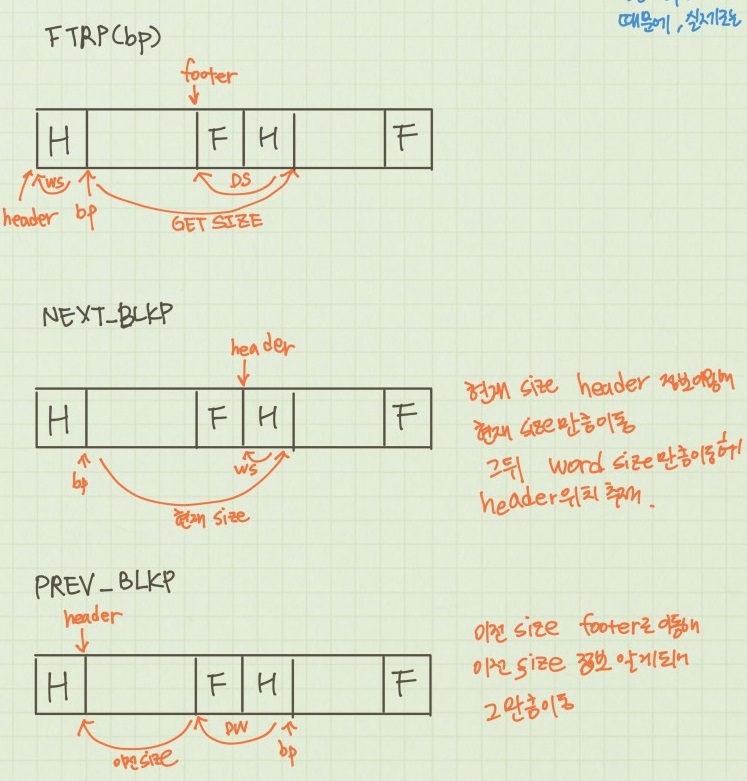 때문에, 실제로는
FTRP(bp)
footer
H F H F
WS DS
header bp GET SIZE
NEXT_BLKP
header
H F H F
WS
bp
현재 size
현재 size header 정보이용해
현재 size만큼이동
그뒤 word size만큼이동하여
header위치 추적.
PREV_BLKP
header
H F H F
이전size DW bp
이전 size footer로 이동해
이전 size 정보 알게되어
그만큼이동